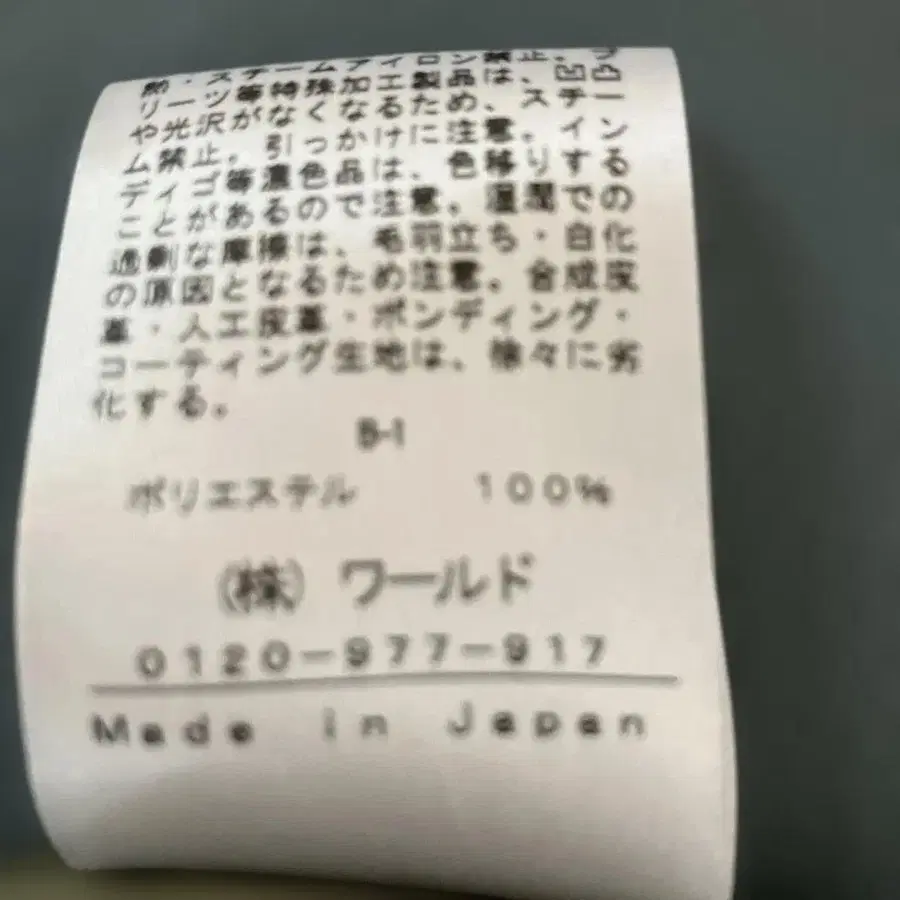 熱・スチームアイロン禁止。プ
リーツ等特殊加工製品は、凹凸
や光沢がなくなるため、スチー
ム禁止。引っかけに注意。イン
ディゴ等濃色品は、色移りする
ことがあるので注意。湿潤での
過剰な摩擦は、毛羽立ち・白化
の原因となるため注意。合成皮
革・人工皮革・ボンディング・
コーティング生地は、徐々に劣
化する。
B-1
ポリエステル 100%
(株) ワールド
0120-977-917
Made in Japan